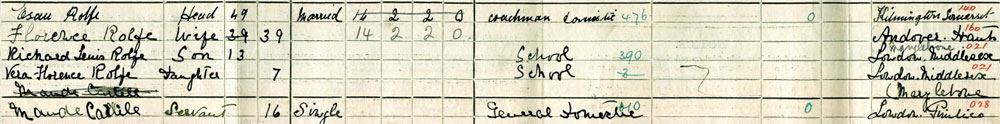 Esau Rolfe Head 49 Married 14 2 2 0 Coachman Domestic 476 0 Kilmington Somerset 140
Florence Rolfe Wife 39 39 14 2 2 0 Andover Hants 160
Richard Lewis Rolfe Son 13 School 390 Marylebone London Middlesex 021
Vera Florence Rolfe Daughter 7 School London Middlesex 021
(Marylebone
Maude Cattile Servant 16 Single General Domestic 010 0 London Pimlico 028